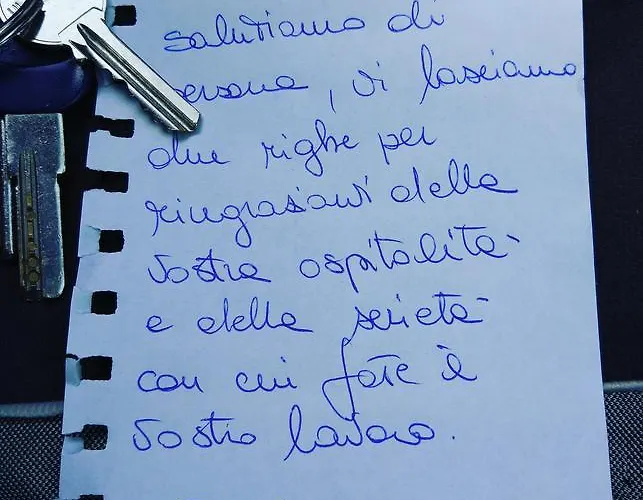 salutiamo di
persona, vi lasciamo
due righe per
ringraziarvi della
vostra ospitalità
e della serietà
con cui fate il
vostro lavoro.